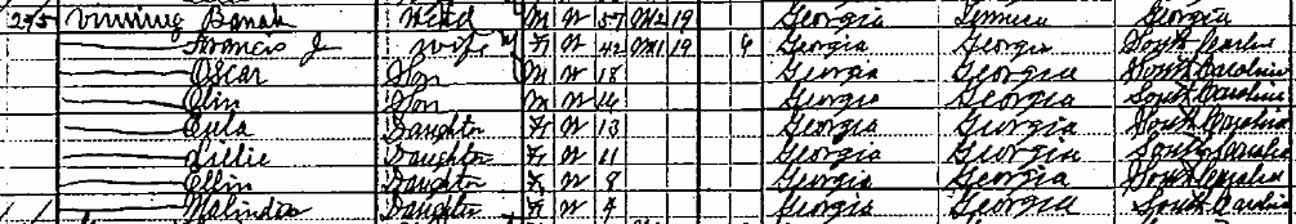 255 Vining Banah Head M W 57 M2 19 Georgia Georgia
Francis J Wife F W 42 M1 19 6 Georgia Georgia South Carolina
Oscar Son M W 18 Georgia Georgia South Carolina
Olin Son M W 14 Georgia Georgia South Carolina
Eula Daughter F W 13 Georgia Georgia South Carolina
Lillie Daughter F W 11 Georgia Georgia South Carolina
Ellin Daughter F W 8 Georgia Georgia South Carolina
Malinda Daughter F W 4 Georgia Georgia South Carolina